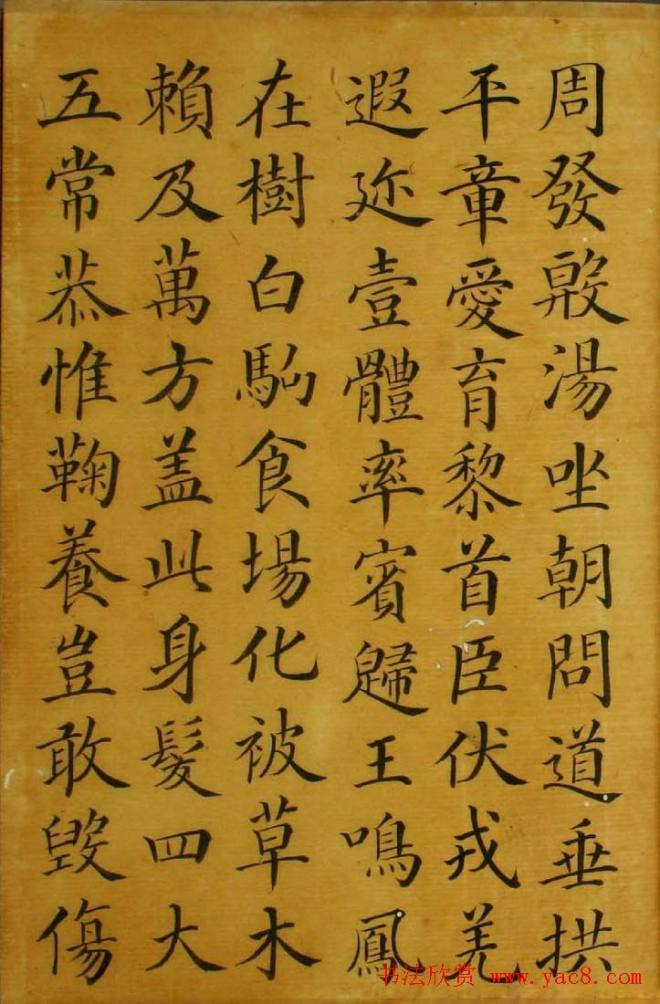 周發殷湯坐朝問道垂拱
平章愛育黎首臣伏戎羌
遐迩壹體率賓歸王鳴鳳
在樹白駒食場化被草木
賴及萬方盖此身髮四大
五常恭惟鞠養豈敢毀傷
书法欣赏 www.yac8.com